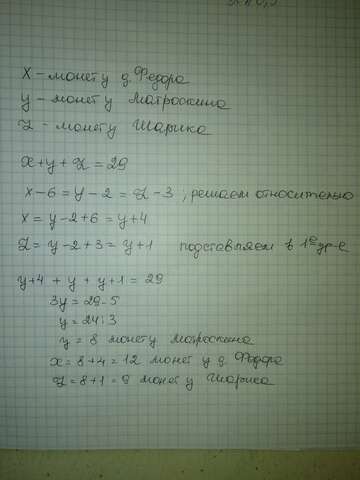 x - монет у д. Федора
y - монет у Матроскина
z - монет у Шарика
x + y + z = 29
x - 6 = y - 2 = z - 3 , решаем относительно
x = y - 2 + 6 = y + 4
z = y - 2 + 3 = y + 1 подставляем в 1е ур-е
y + 4 + y + y + 1 = 29
3y = 29 - 5
y = 24 : 3
y = 8 монет у Матроскина
x = 8 + 4 = 12 монет у д. Федора
z = 8 + 1 = 9 монет у Шарика